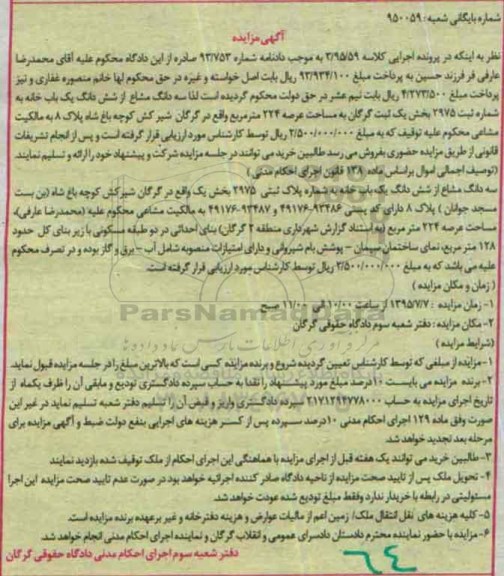 شماره بایگانی شعبه : ۹۵۰۰۵۹
آگهی مزایده
نظر به اینکه در پرونده اجرایی کلاسه ۳/۹۵/۵۹ به موجب دادنامه شماره ۹۳/۷۵۳ صادره از این دادگاه محکوم علیه آقای محمدرضا
عارفی فر فرزند حسین به پرداخت مبلغ ۹۳/۹۳۴/۱۰۰ ریال بابت اصل خواسته و غیره در حق محکوم لها خانم منصوره غفاری و نیز
پرداخت مبلغ ۴/۳۷۳/۵۰۰ ریال بابت نیم عشر در حق دولت محکوم گردیده است لذا سه دانگ مشاع از شش دانگ یک باب خانه به
شماره ثبت ۲۹۷۵ بخش یک ثبت گرگان به مساحت عرصه ۲۲۴ مترمربع واقع در گرگان شیر کش کوچه باغ شاه پلاک ۸ به مالکیت
مشاعی محکوم علیه توقیف که به مبلغ ۲/۵۰۰/۰۰۰/۰۰۰ ریال توسط کارشناس مورد ارزیابی قرار گرفته است و پس از انجام تشریفات
قانونی از طریق مزایده حضوری بفروش می رسد طالبین خرید می توانند در جلسه مزایده شرکت و پیشنهاد خود را ارائه و تسلیم نمایند.
(توصیف اجمالی اموال براساس ماده ۱۳۸ قانون اجرای احکام مدنی )
سه دانگ مشاع از شش دانگ یک باب خانه به شماره پلاک ثبتی ۲۹۷۵ بخش یک واقع در گرگان شیرکش کوچه باغ شاه (بن بست
مسجد جوانان ) پلاک ۸ دارای کد پستی ۹۳۲۸۶-۴۹۱۷۶ و ۹۳۴۸۷-۴۹۱۷۶ به مالکیت مشاعی محکوم علیه (محمدرضا عارفی)،
مساحت عرصه ۲۲۴ متر مربع (به استناد گزارش شهرداری منطقه ۲ گرگان) بنای احداثی در دو طبقه مسکونی با زیر بنای کل حدود
۱۲۸ متر مربع، نمای ساختمان سیمان - پوشش بام شیروانی و دارای امتیازات منصوبه شامل آب - برق و گاز بوده و در تصرف محکوم
علیه می باشد که به مبلغ ۲/۵۰۰/۰۰۰/۰۰۰ ریال توسط کارشناس مورد ارزیابی قرار گرفته است.
( زمان و مکان مزایده )
۱- زمان مزایده : ۱۳۹۵/۷/۷ از ساعت ۱۰/۰۰ الی ۱۱/۰۰ صبح
۲- مکان مزایده : دفتر شعبه سوم دادگاه حقوقی گرگان
(شرایط مزایده )
۱- مزایده از مبلغی که توسط کارشناس تعیین گردیده شروع و برنده مزایده کسی است که بالاترین مبلغ را در جلسه مزایده قبول نماید.
۲- برنده مزایده می بایست ۱۰درصد مبلغ مورد پیشنهاد را نقدا به حساب سپرده دادگستری تودیع و مابقی آن را ظرف یکماه از
تاریخ اجرای مزایده به حساب ۲۱۷۱۲۹۴۷۷۸۰۰۰ سپرده دادگستری واریز و قبض آن را تسلیم دفتر شعبه تسلیم نماید در غیر این
صورت وفق ماده ۱۲۹ اجرای احکام مدنی ۱۰درصد سپرده پس از کسر هزینه های اجرایی بنفع دولت ضبط و آگهی مزایده برای
مرحله بعد تجدید خواهد شد.
۳- طالبین خرید می توانند یک هفته قبل از اجرای مزایده با هماهنگی این اجرای احکام از ملک توقیف شده بازدید نمایند
۴- تحویل ملک پس از تایید صحت مزایده از ناحیه دادگاه صادر کننده اجرائیه خواهد بود در صورت عدم تایید صحت مزایده این اجرا
مسئولیتی در رابطه با خریدار ندارد وفقط مبلغ تودیع شده عودت خواهد شد.
۵- کلیه هزینه های نقل انتقال ملک/ زمین اعم از مالیات عوارض و هزینه دفترخانه و غیر برعهده برنده مزایده است.
۶- مزایده با حضور نماینده محترم دادستان دادسرای عمومی و انقلاب گرگان و نماینده اجرای احکام مدنی انجام خواهد شد.
دفتر شعبه سوم اجرای احکام مدنی دادگاه حقوقی گرگان
۶۴
ParsNamadData